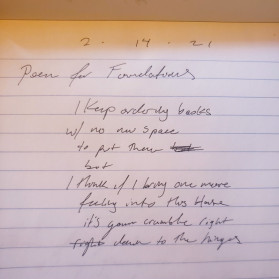 2 . 14 . 21
Poem for Foundations
I keep ordering books
w/ no new space
to put them
but
I think if I bring one more
feeling into this house
it's gonna crumble right
right down to the hinges